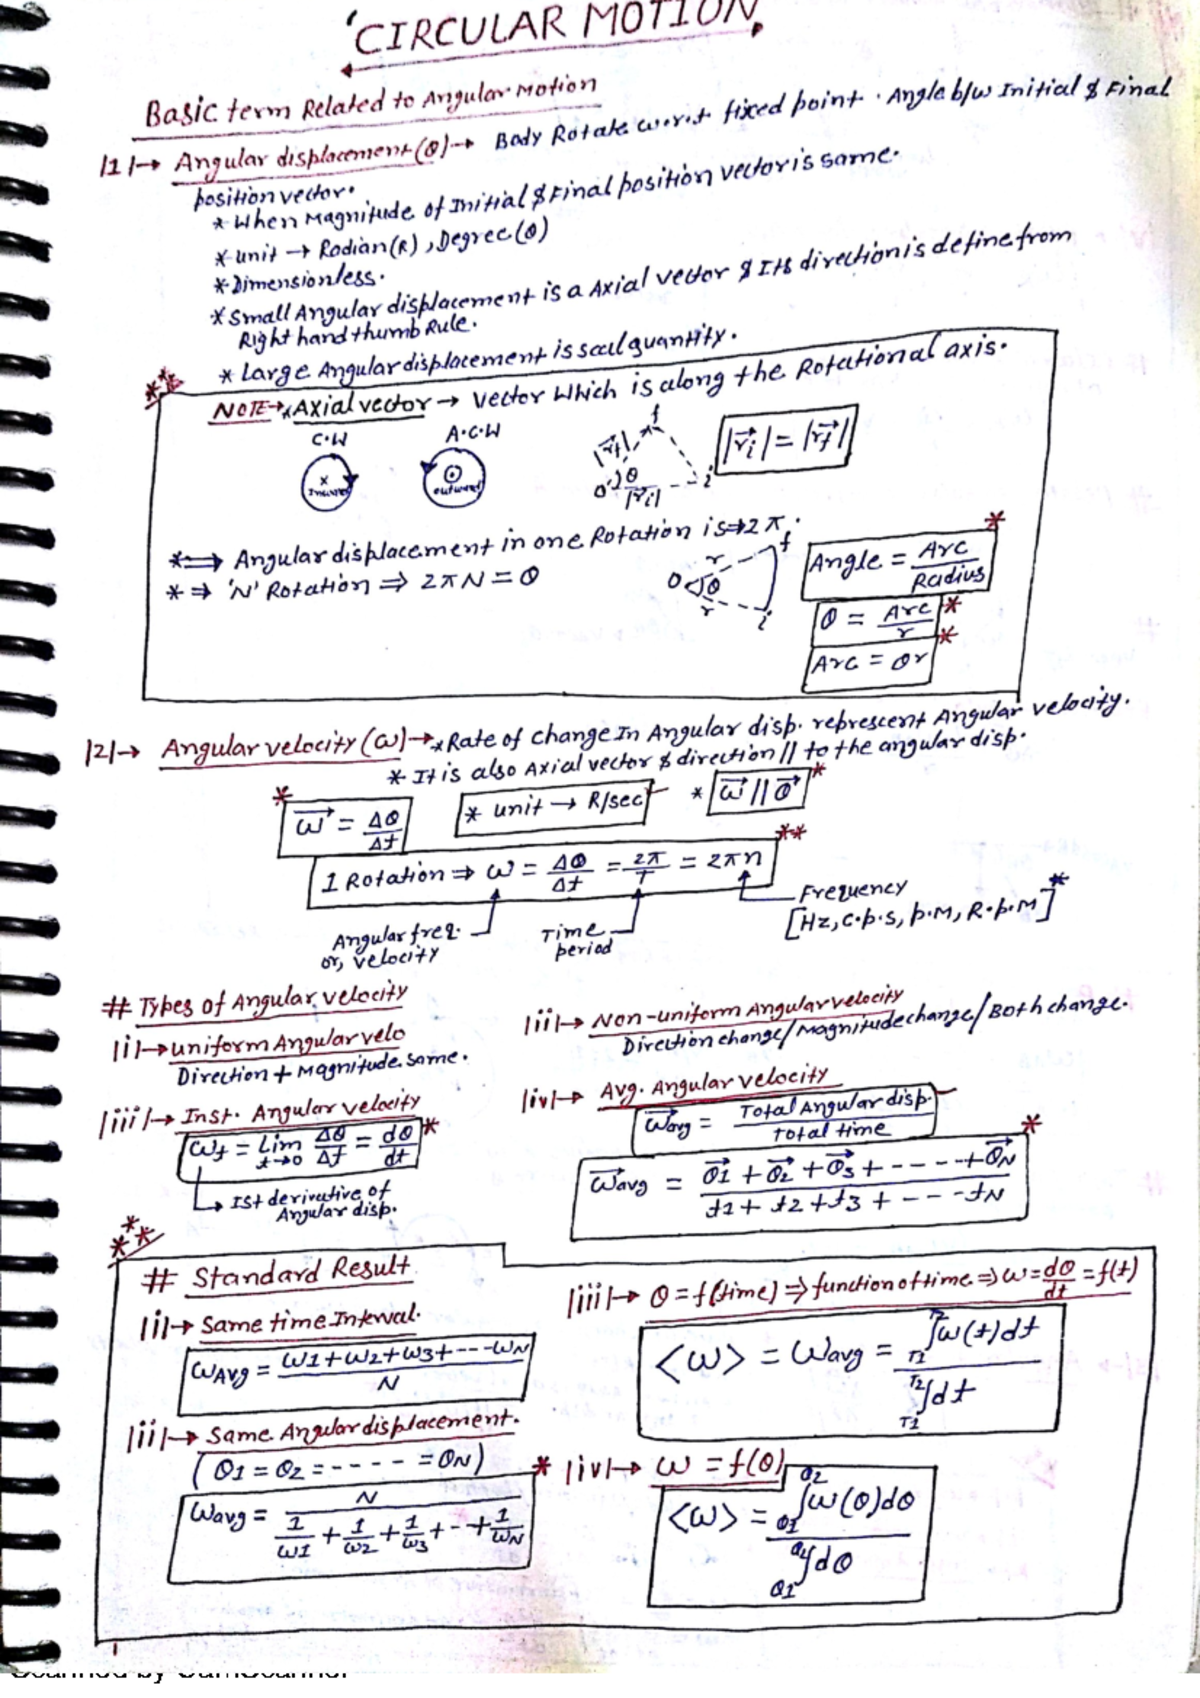 'CIRCULAR MOTION'
Basic term Related to Angular Motion
|1|→ Angular displacement(θ)→ Body Rotate w.r.t fixed point. Angle b/w Initial & Final
position vector.
* When Magnitude of Initial & Final position vector is same.
* unit → Radian(R), Degree(θ)
* Dimensionless.
* Small Angular displacement is a Axial vector & Its direction is define from
Right hand thumb Rule.
* Large Angular displacement is scal quantity.
** NOTE→* Axial vector → Vector Which is along the Rotational axis.
C.W A.C.W
x Inward ⊙ outward
|r⃗f| f θ O |r⃗i| i
|r⃗i| = |r⃗f|
*⇒ Angular displacement in one Rotation is ⇒ 2π.
*⇒ 'N' Rotation ⇒ 2πN = θ
O θ r r f i
Angle = Arc / Radius *
θ = Arc / r *
Arc = θr *
|2|→ Angular velocity (ω)→ * Rate of change In Angular disp. represcent Angular velocity.
* It is also Axial vector & direction // to the angular disp.
* ω⃗ = Δθ / Δt * unit → R/sec * ω⃗ // θ⃗ *
1 Rotation ⇒ ω = Δθ / Δt = 2π / T = 2πn **
Angular freq. or, velocity
Time period
Frequency
[Hz, C.p.s, p.M, R.p.M] *
# Types of Angular velocity
|i|→ uniform Angular velo
Direction + Magnitude same.
|ii|→ Non-uniform Angular velocity
Direction change/Magnitude change/Both change.
|iii|→ Inst. Angular velocity
ωt = Lim t→0 Δθ / Δt = dθ / dt *
Ist derivative of
Angular disp.
|iv|→ Avg. Angular velocity
ω⃗avg = Total Angular disp. / total time
ω⃗avg = θ⃗1 + θ⃗2 + θ⃗3 + ---- + θ⃗N / t1 + t2 + t3 + --- tN *
***
# Standard Result
|i|→ Same time Interval.
ωAvg = ω1+ω2+ω3+---ωN / N
|ii|→ Same Angular displacement.
(θ1 = θ2 = ---- = θN)
ωavg = N / 1/ω1 + 1/ω2 + 1/ω3 + --+ 1/ωN
|iii|→ θ = f(time) ⇒ function of time ⇒ ω = dθ/dt = f(t)
<ω> = ωavg = T1∫T2 ω(t)dt / T1∫T2 dt
* |iv|→ ω = f(θ)
<ω> = θ1∫θ2 ω(θ)dθ / θ1∫θ2 dθ
Scanned by CamScanner